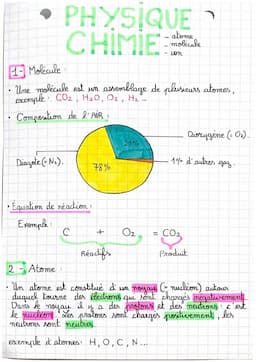 PHYSIQUE
CHIMIE
- atome
- molécule
- ion
1 - Molécule :
• Une molécule est un assemblage de plusieurs atomes,
exemple : CO2, H2O, O2, H2 ...
• Composition de l'AIR :
Dioxygène (= O2).
21%
Diazote (= N2).
78%
1% d'autres gaz.
• Équation de réaction :
Exemple :
C + O2 = CO2
Réactifs Produit
2 - Atome :
Un atome est constitué d'un noyau (= nucléon) autour
duquel tourne des électrons qui sont chargés négativement.
Dans le noyau il y a des protons et des neutrons : c'est
le nucléon. Les protons sont chargés positivement, les
neutrons sont neutres.
exemple d'atomes : H, O, C, N ...